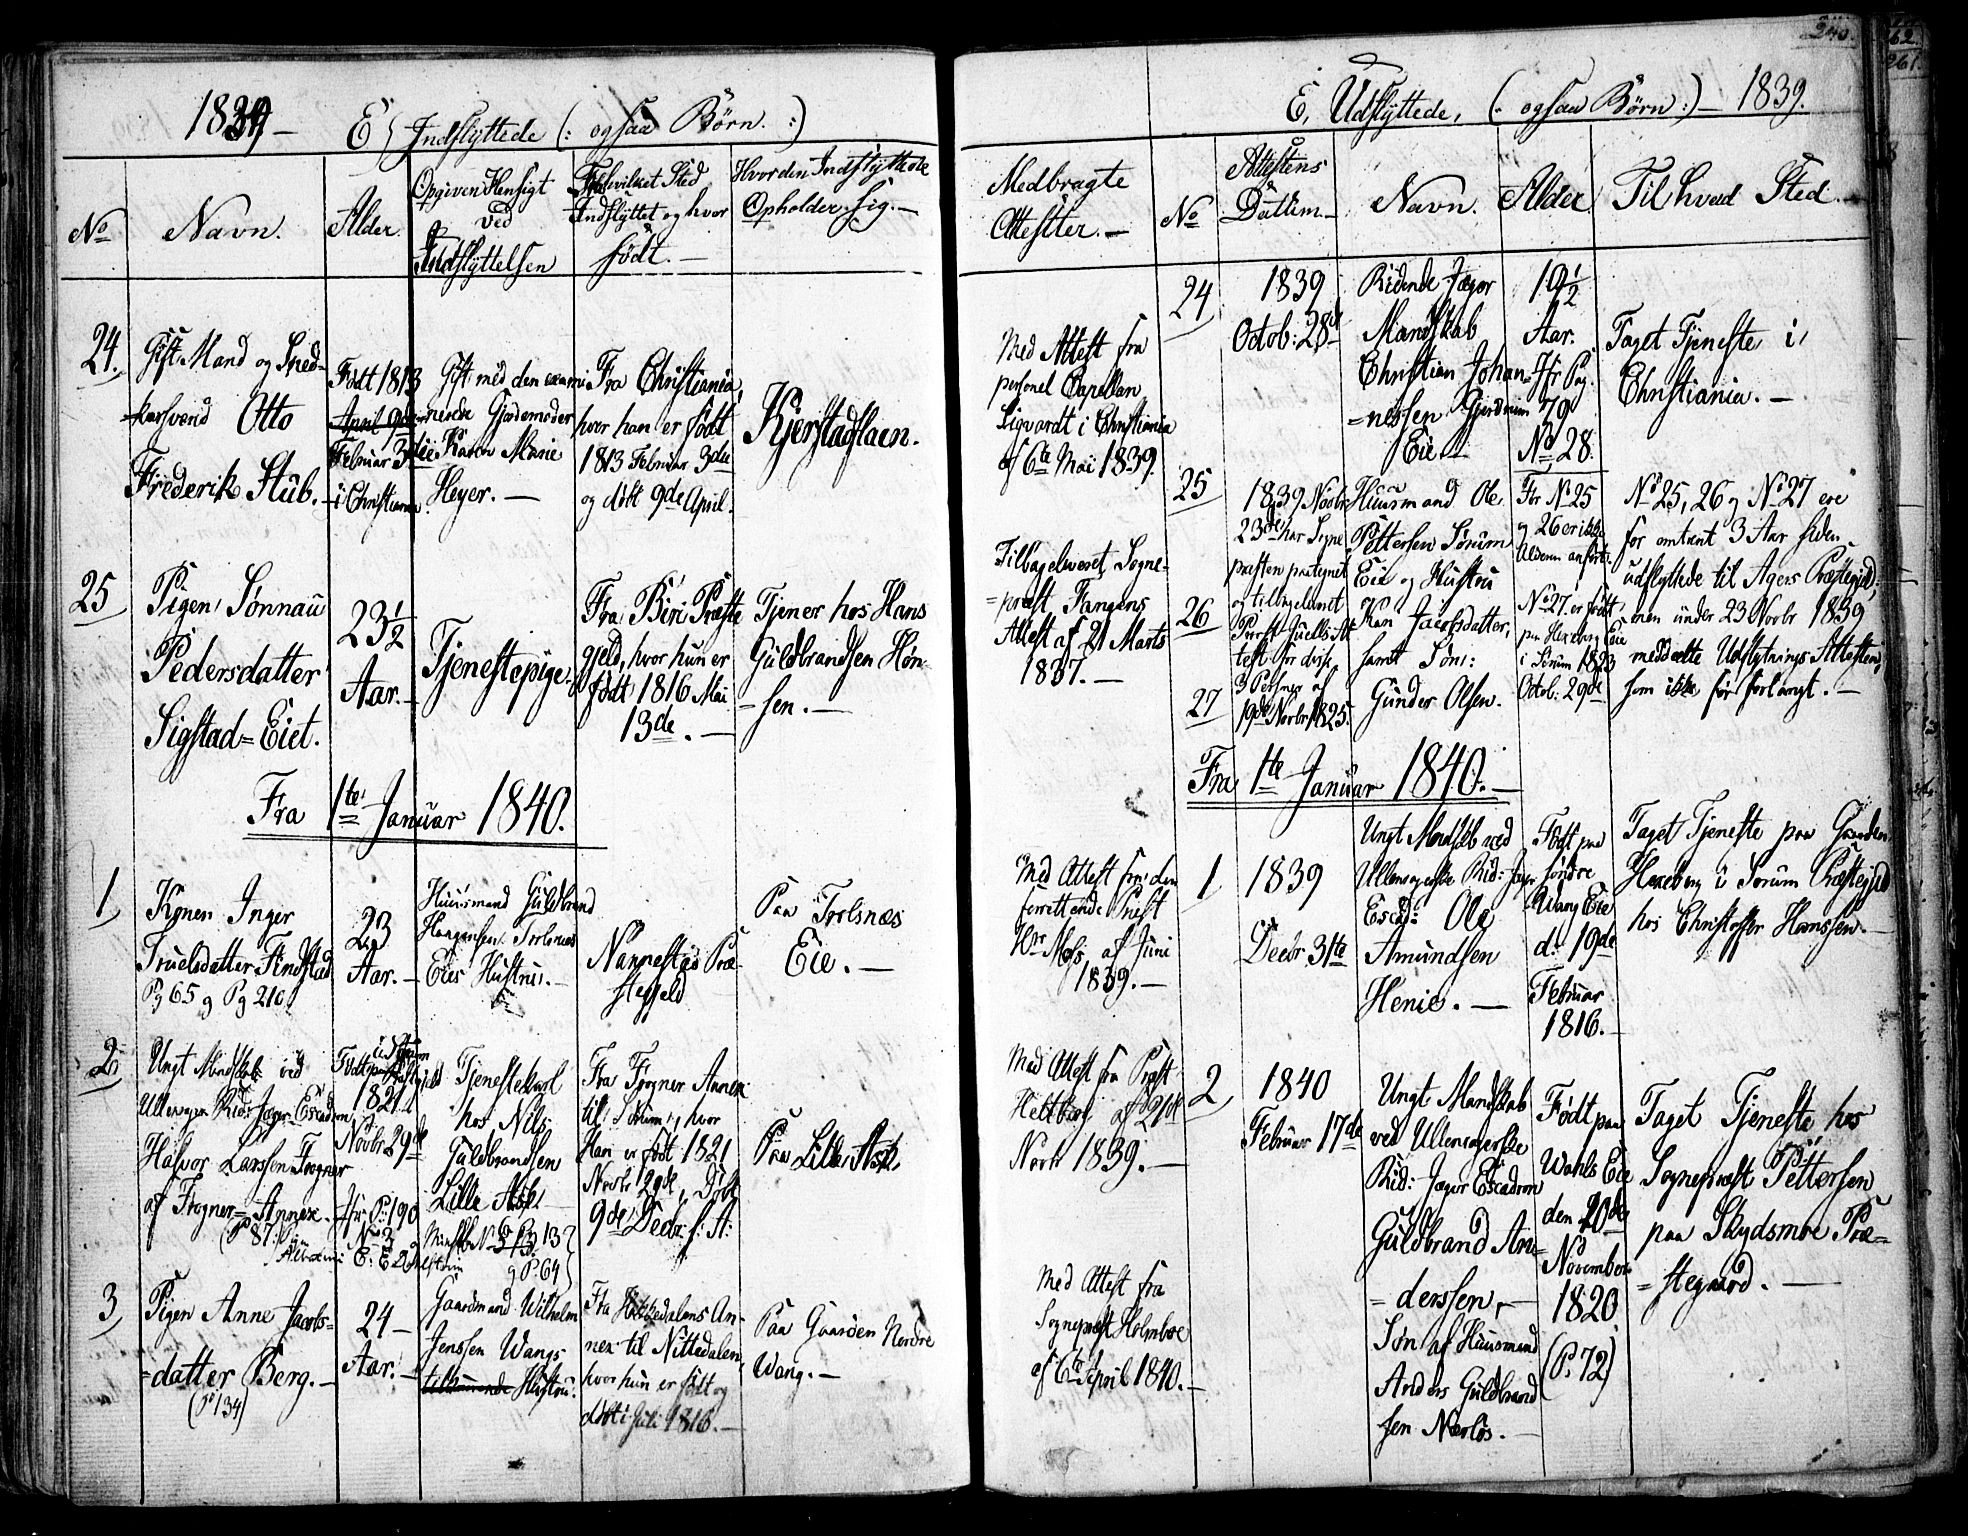 1839 –
E, Indflyttede (: ogsaa Børn. :)
No
Navn.
Alder.
Opgiven Hensigt
ved
Indflyttelsen
Fra hvilket Sted
Indflyttet og hvor
født. –
Hvor den Indflyttede
Opholder sig. –
Medbragte
Attester. –
24.
Gift Mand og
Otto
Frederik Stub. –
Født 1813
April 9de
Februar 3die
i Christiania.
Gift med den exami
nerede Gjordemoder
Karen Marie
Heyer. –
Fra Christiania,
hvor han er født
1813 Februar 3die
og døbt 9de April.
Kjerstadlaen.
Med Attest fra
personel Capellan
Sigvardt i Christiania
af 6te Mai 1839.
25
Pigen Sønnau
Pedersdatter
Sigstad = Eiet.
23½
Aar. –
Tjenestepige.
Fra Biri Præste
gjeld, hvor hun er
født 1816 Mai
13de. –
Tjener hos Hans
Guldbrandsen Høn-
= sen. –
Tilbageleveret Sogne-
= præst Fangens
Attest af 21 Marts
1837. –
Fra 1te Januar 1840.
1
Konen Inger
Truelsdatter Findstad
Pg 65 og Pg 210
23
Aar. –
Huusmand Guldbrand
Haagensen Trolsnæs
Eies Hustru. –
Nannestad Præ-
stegjeld
Paa Trolsnæs
Eie. –
Med Attest fra den
forrettende Præst
Hr Moss, af Juni
1839. –
2
Ungt Mandskab ved
Ullensager Rid: Jæger Escadron
Halvor Larssen Frogner
af Frogner = Annex.
(P 87.
Født paa
1821
Novbr 29de
Jfr P. 190
No 3
Tjenestekarl
hos Nils
Guldbrandsen
Lille Ask. –
og P. 64
Fra Frogner Annex
til Sørum, hvor
Han er født 1821
Novbr 29de, Døbt
9de Decbr s: A:
Paa Lille Ask
Med Attest fra Præst
Heltberg af 21de
Novbr 1839. –
3
Pigen Anne Jacobs=
=datter Berg. –
(P 134)
24 –
Aar. –
Gaardmand Wilhelm
Jenssen Wangs
tilkommende Hustru.
Fra Hakkedalens An-
nex til Nittedalen,
hvor hun er født og
døbt i Juli 1816. –
Paa Gaarden Nordre
Wang. –
Med Attest fra
Sognepræst Holmboe
af 6te April 1840. –
240.
262.
261.
E, Udflyttede, (: ogsaa Børn :) – 1839.
No
Attestens
Datum –
Navn.
Alder.
Til hvad Sted. –
24
1839
Octob: 28de
Ridende Jæger
Mandskab
Christian Johan-
=nessen Gjerdrum
Eie –
19½
Aar.
Jfr Pag.
79
No 28.
Taget Tjeneste i
Christiania. –
25
26
27
1839 Novbr
23de har Sogne
præsten protegnet
og tilbageleveret
Præst Juells At
test for disse
3 Personer af
19de Novbr 1825.
Huusmand Ole
Pettersen Sørum
Eie og Hustru
Kari Jacobsdatter,
samt Søn:
Gunder Olsen.
For No 25
og 26 er ikke
Alderen anført.
No 27. er født
paa Hexeberg Eie
i Sørum 1823
Octob: 29de
No 25, 26 og No 27 ere
for omtrent 3 Aar siden
udflyttede til Agers Præstegjeld;
men under 23 Novbr 1839
meddeelte Udflytnings Attesten,
som ikke før forlangt. –
Fra 1te Januar 1840. –
1
1839
Decbr 31te
Ungt Mandskab ved
Ullensagerske Rid: Jæger
Escad: Ole
Amundsen
Henie. –
Født paa
søndre
Wang Eie
d. 19de
Februar
1816. –
Taget Tjeneste paa Gaarden
Hexeberg i Sørum Præstegjeld
hos Christoffer Hanssen. –
2
1840
Februar 17de
Ungt Mandskab
ved Ullensagerske
Rid: Jæger Escadron
Guldbrand An=
= derssen, –
Søn af Huusmand
Anders Guldbrand
sen Nærløs. –
Født paa
Wahls Eie
den 20de
November
1820
(P. 72)
Taget Tjeneste hos
Sognepræst Pettersen
paa Skydsmoe Præ=
= stegaard. –